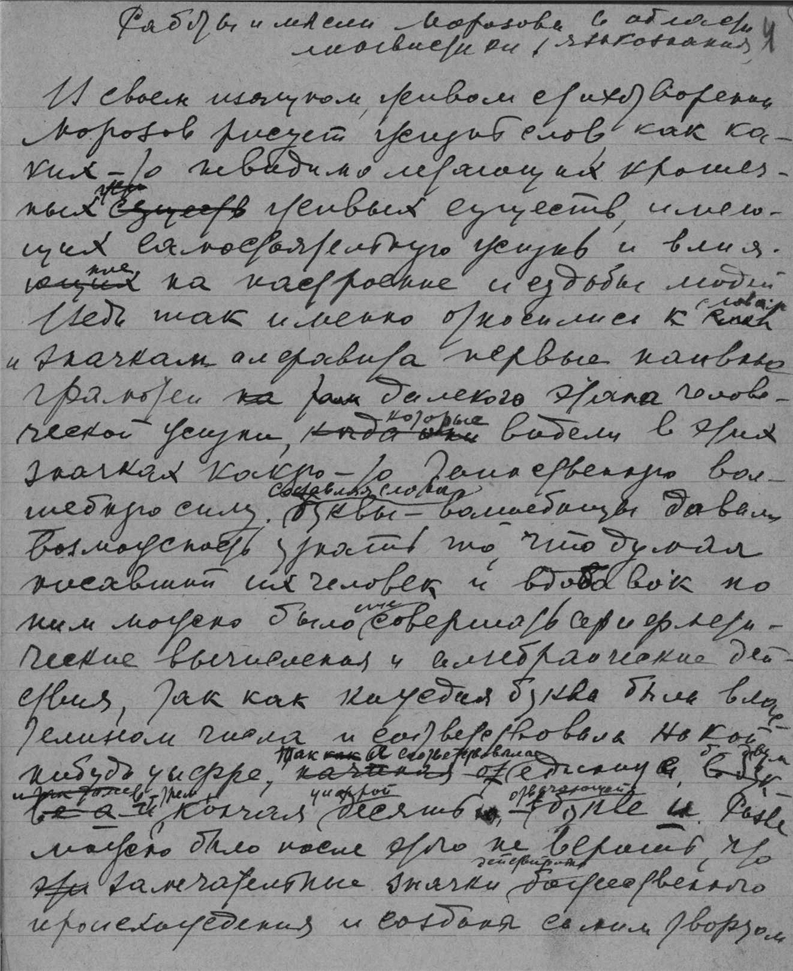 Работы и мысли Морозова в области
лингвистики, языкознания 4
В своем изящном, живом стихотворении
Морозов рисует жизнь слов, как ка-
ких-то невидимо летающих крошеч-
ных существ живых существ, имею-
щих самостоятельную жизнь и влия-
ющих ние на настроение и судьбы людей
Ведь так именно относились к словам
и значкам алфавита первые наивные
грамотеи на далекого этапа челове-
ческой жизни, когда они которые видели в этих
значках какую-то таинственную вол-
шебную силу. составляя слова Буквы-волшебницы давали
возможность узнать то, что думал
писавший их человек и вдобавок по
ним можно было совершать арифмети-
ческие вычисления и алгебраические дей-
ствия, так как каждая буква была вла-
телином числа и соответствовала какой
нибудь цифре, так как А соответствовала начиная от единице,
кончая цифрой десять, отвечающей букве и. Разве
можно было после этого не верить, что
эти замечательные значки божественного
происхождения и созданы самим творцом